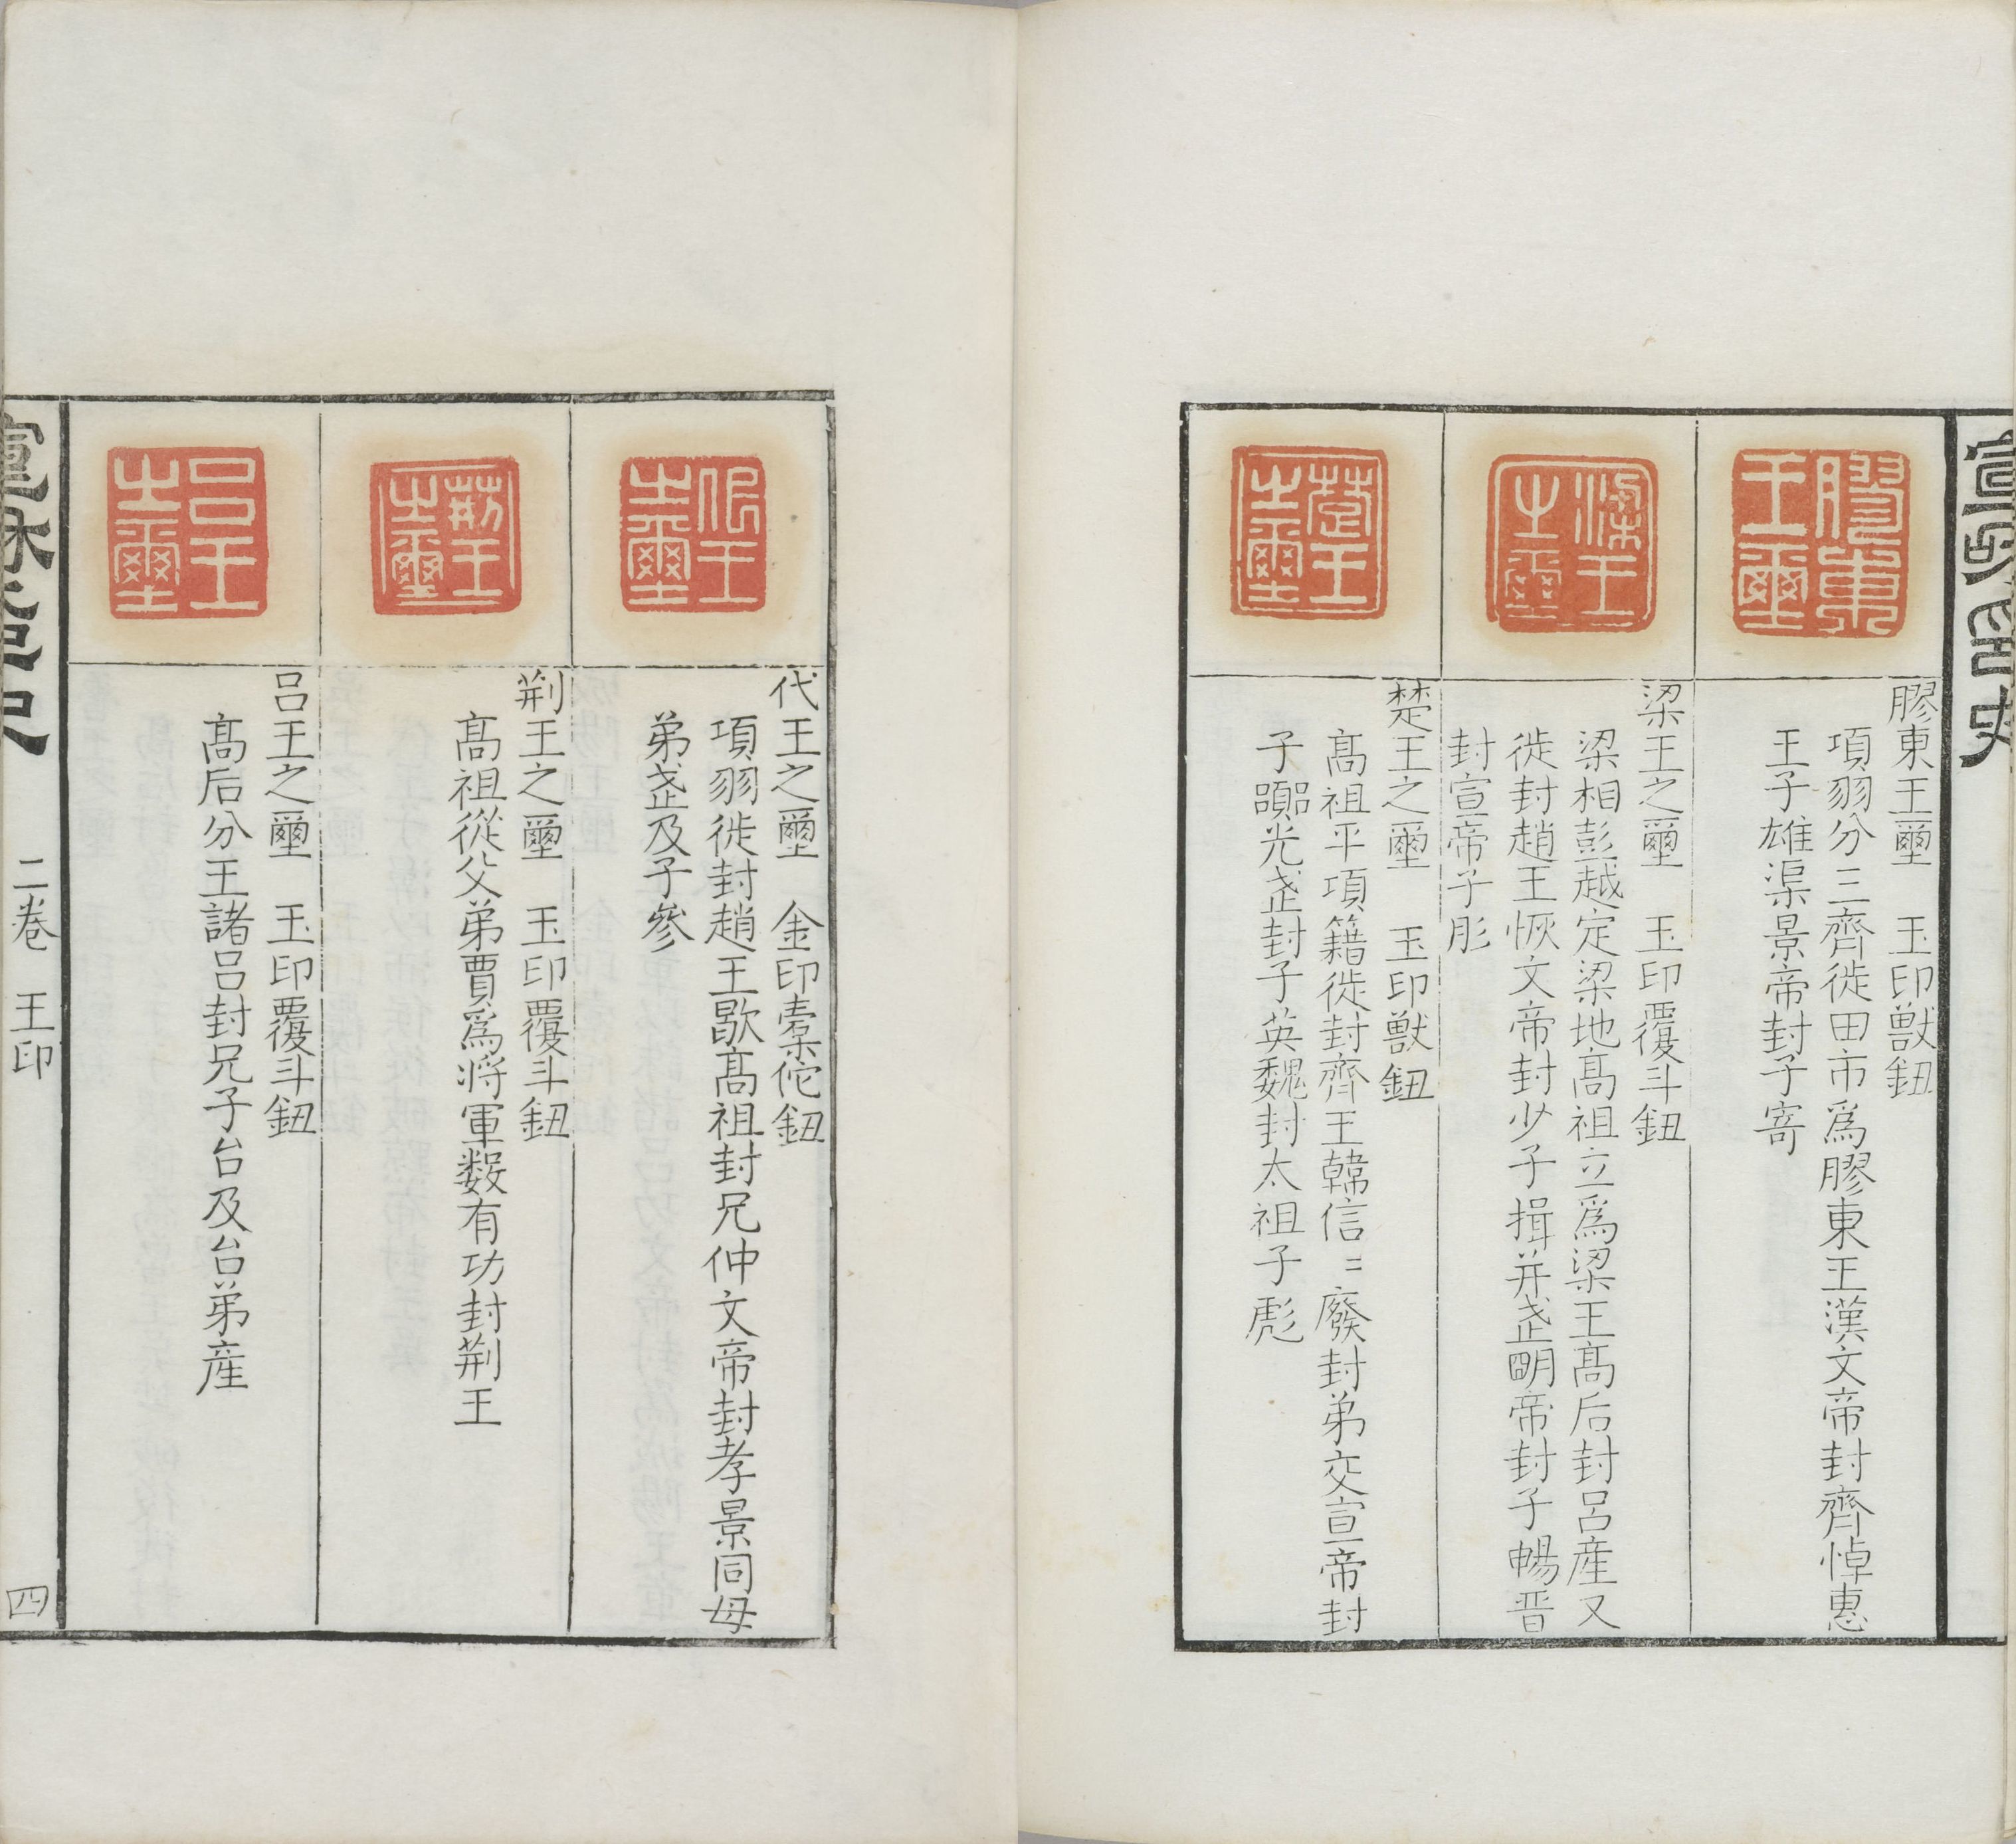 膠東王壐
膠東王壐　玉印獸鈕
項羽分三齊徙田市爲膠東王漢文帝封齊悼惠
王子雄渠景帝封子寄
梁王之壐
梁王之壐　玉印覆斗鈕
梁相彭越定梁地髙祖立爲梁王髙后封呂産又
徙封趙王恢文帝封少子揖并武明帝封子暢晋
封宣帝子肜
楚王之壐
楚王之壐　玉印獸鈕
髙祖平項籍徙封齊王韓信〻廢封弟交宣帝封
子嚻光武封子英魏封太祖子彪
代王之壐
代王之壐　金印橐佗鈕
項羽徙封趙王歇髙祖封兄仲文帝封孝景同母
弟武及子參
荆王之壐
荆王之壐　玉印覆斗鈕
髙祖從父弟賈爲將軍数有功封荆王
呂王之壐
呂王之壐　玉印覆斗鈕
髙后分王諸呂封兄子台及台弟産
二卷　王印　四